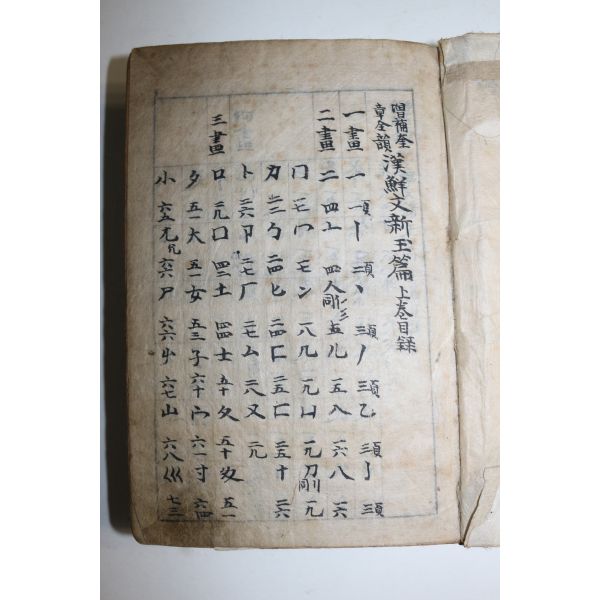 增補奎章全韻 漢鮮文新玉篇 上卷目錄
一畫 一 一頁 丨 二頁 丶 三頁 丿 三頁 乙 三頁 亅 三頁
二畫 二 四 亠 四 人 五 儿 一五 入 一六 八 一六
冂 一七 冖 一七 冫 一八 几 一九 凵 一九 刀 一九
力 二二 勹 二四 匕 二四 匚 二五 匸 二五 十 二六
卜 二六 卩 二七 厂 二七 厶 二八 又 二九
三畫 口 二九 囗 四二 土 四四 士 五十 夂 五十 夊 五一
夕 五一 大 五一 女 五三 子 六十 宀 六一 寸 六四
小 六五 尢 兀 六六 尸 六六 屮 六七 山 六八 巛 七三